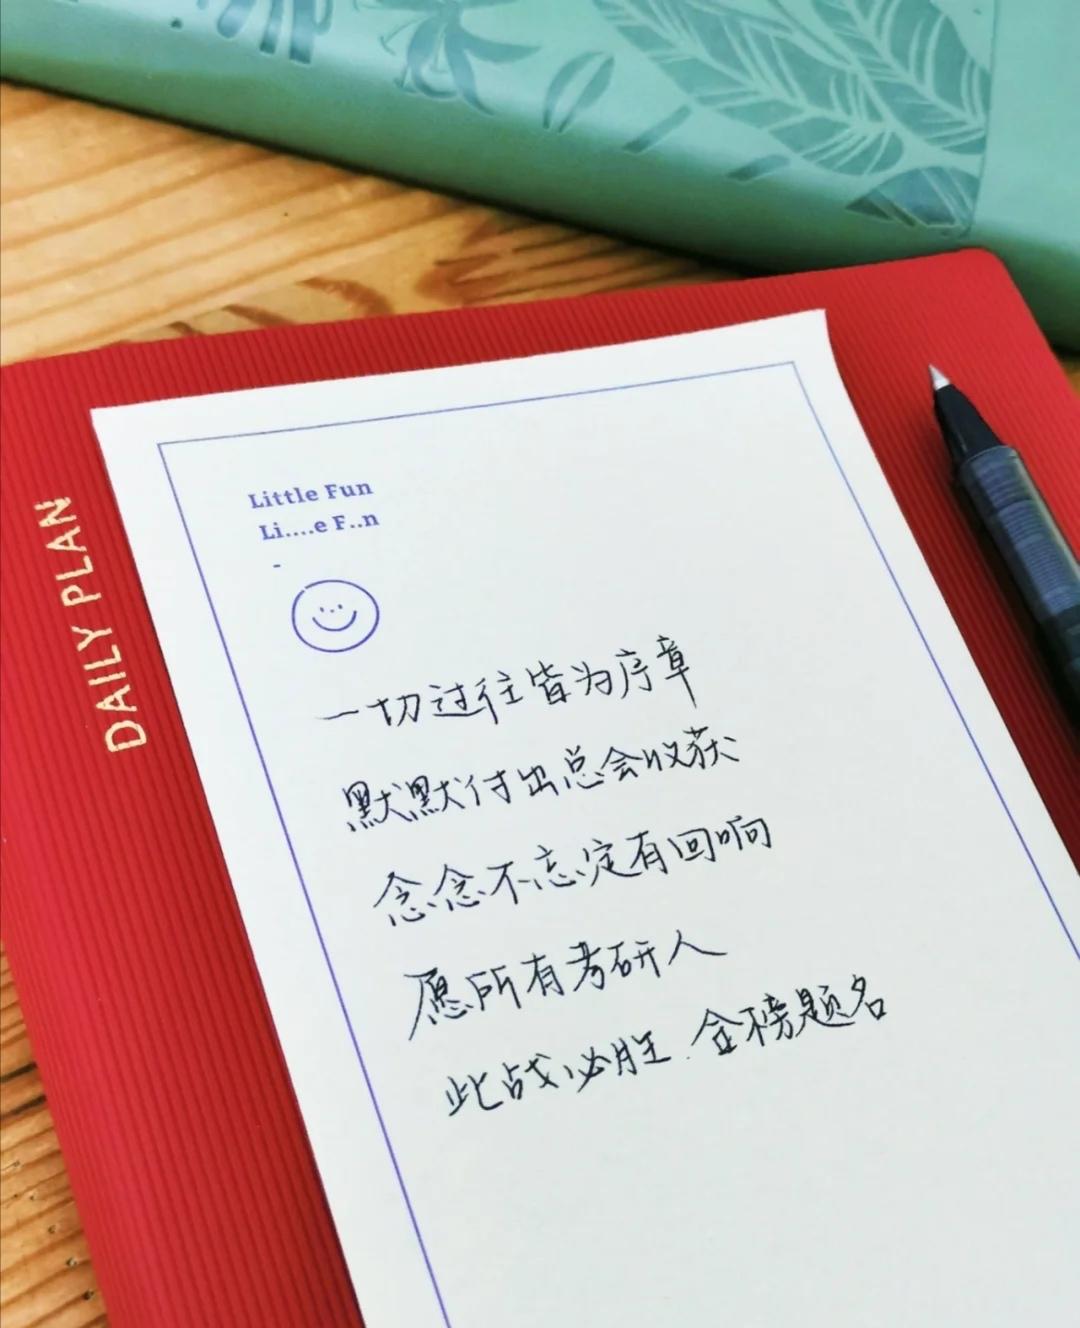 DAILY PLAN
Little Fun
Li....e F..n
-
一切过往皆为序章
默默付出总会收获
念念不忘定有回响
愿所有考研人
此战必胜.金榜题名